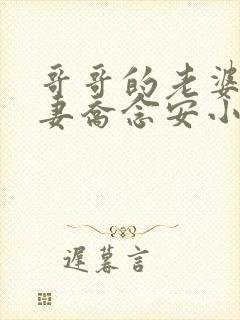 哥哥的老婆
妻乔念安小
遲暮言